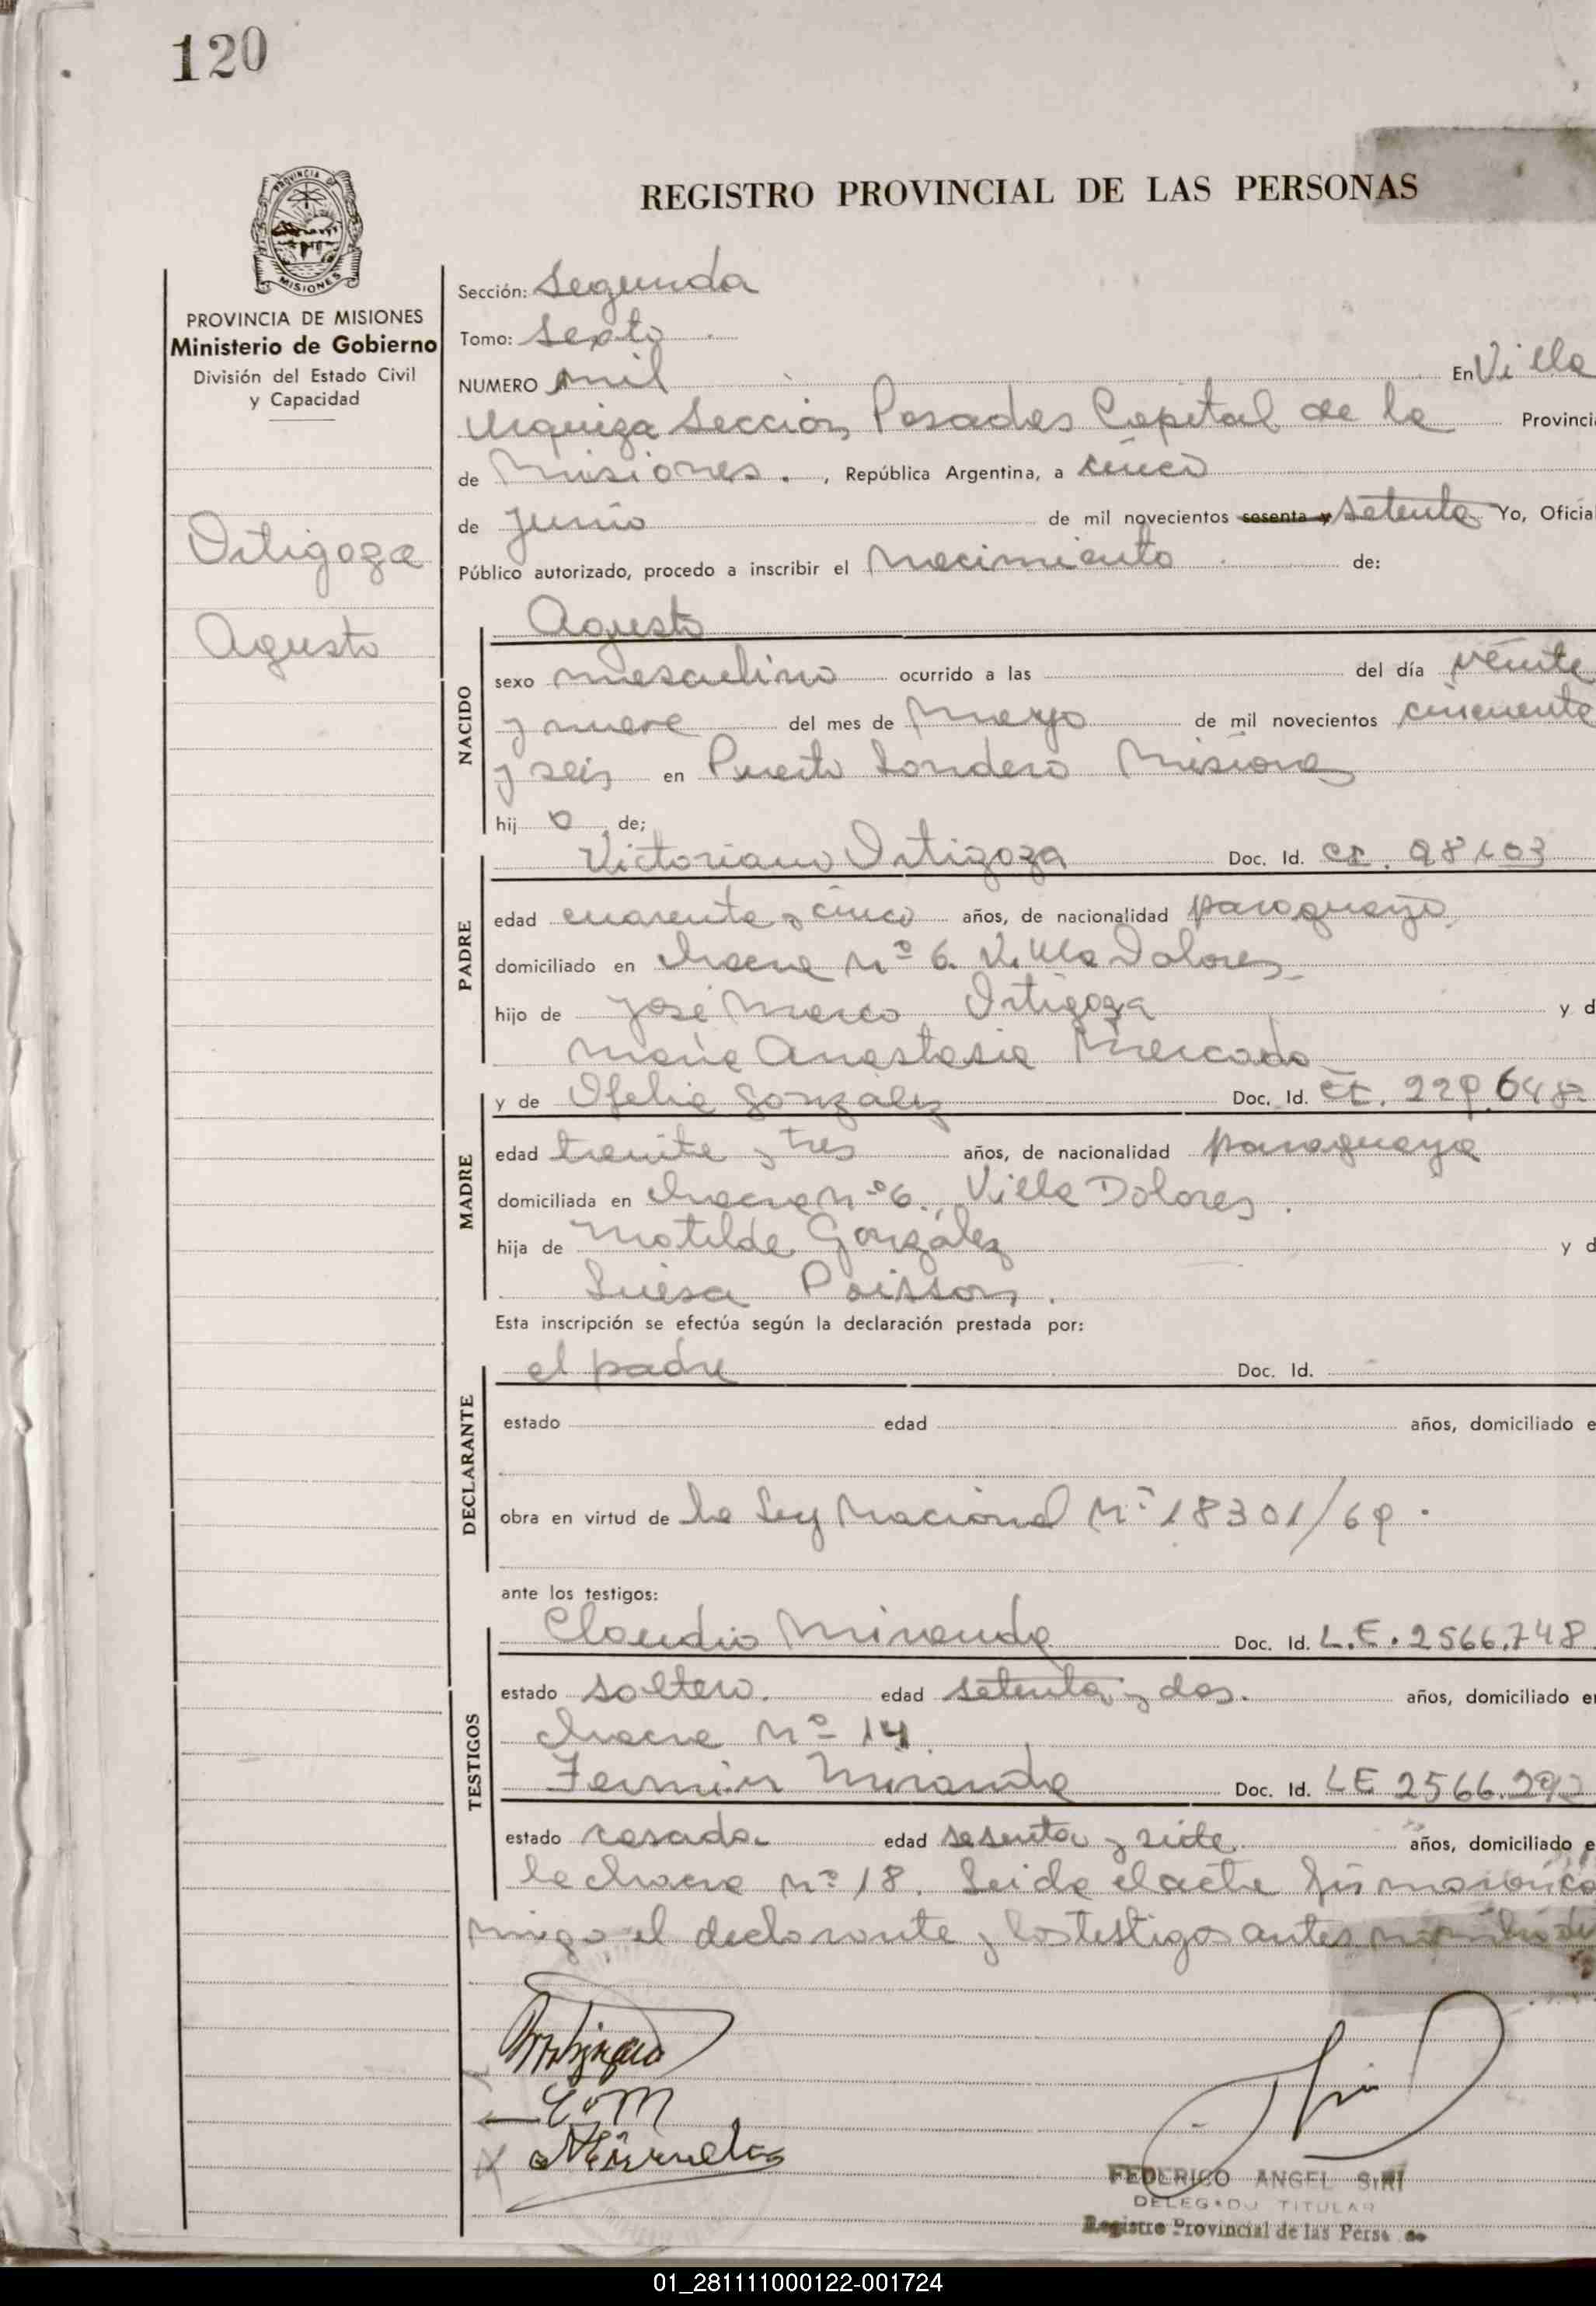 120
PROVINCIA DE
MISIONES
REGISTRO PROVINCIAL DE LAS PERSONAS
PROVINCIA DE MISIONES
Ministerio de Gobierno
División del Estado Civil
y Capacidad
Ortigoza
Agusto
Sección: Segunda
Tomo: Sexto
NUMERO mil En Villa
Urquiza Sección Posadas Capital de la Provinci
de Misiones. , República Argentina, a cinco
de Junio de mil novecientos sesenta y setenta Yo, Oficial
Público autorizado, procedo a inscribir el Nacimiento de:
NACIDO
Agusto
sexo masculino ocurrido a las del día veinte
y nueve del mes de Mayo de mil novecientos cincuenta
y seis en Puerto Londero Misiones
hij o de;
PADRE
Victoriano Ortigoza Doc. Id. 98103
edad cuarenta y cinco años, de nacionalidad paraguayo
domiciliado en chacra nº 6. Villa Dolores
hijo de José Marco Ortigoza y d
María Anastasia Mercado
MADRE
y de Ofelia González Doc. Id. 229.648
edad treinta y tres años, de nacionalidad paraguaya
domiciliada en chacra nº 6. Villa Dolores.
hija de Matilde González y d
Luisa Poisson.
Esta inscripción se efectúa según la declaración prestada por:
DECLARANTE
el padre Doc. Id.
estado edad años, domiciliado e
obra en virtud de la Ley Nacional Nº 18301/69.
ante los testigos:
TESTIGOS
Claudio Miranda Doc. Id. L.E. 2566.748
estado soltero. edad setenta y dos. años, domiciliado en
chacra nº 14
Fermin Miranda Doc. Id. LE 2566.292
estado casado. edad sesenta y siete años, domiciliado e
la chacra nº 18. Leida el acta firman co
migo el declarante y los testigos antes
C. M
FEDERICO ANGEL SIRI
DELEGADO TITULAR
Registro Provincial de las Pers
01_281111000122-001724